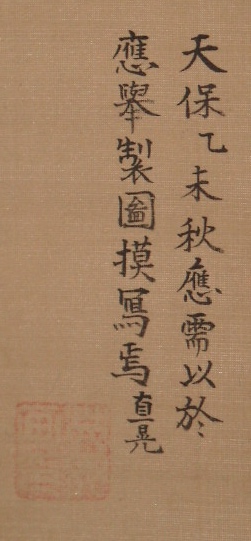 天保乙未秋應需以於
應擧製圖摸冩焉直晃